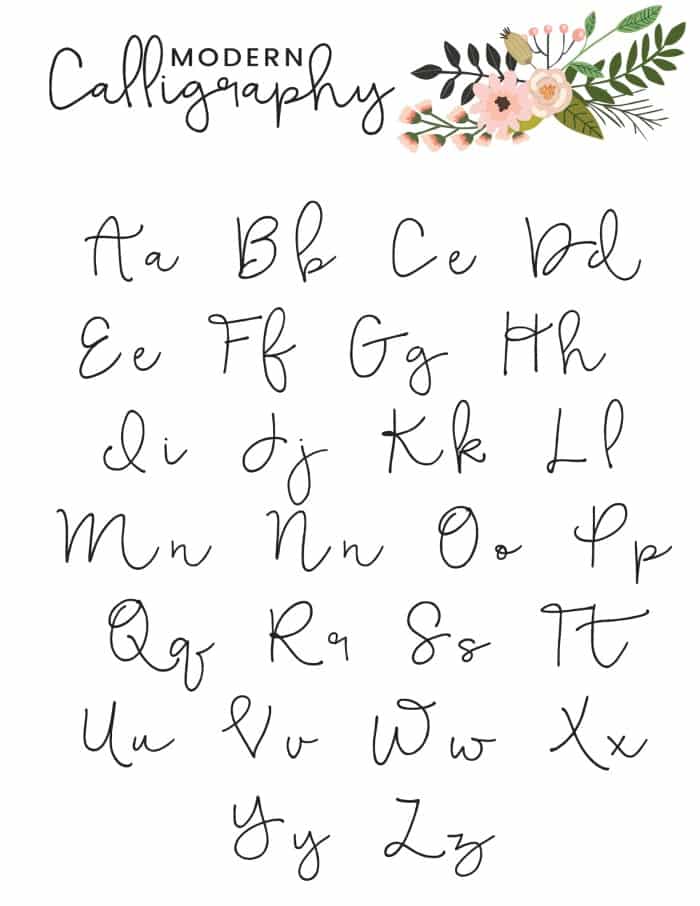 MODERN
Calligraphy
Aa Bb Ce Dd
Ee Ff Gg Hh
Ii Jj Kk Ll
Mn Nn Oo Pp
Qq Rr Ss Tt
Uu Vv Ww Xx
Yy Zz